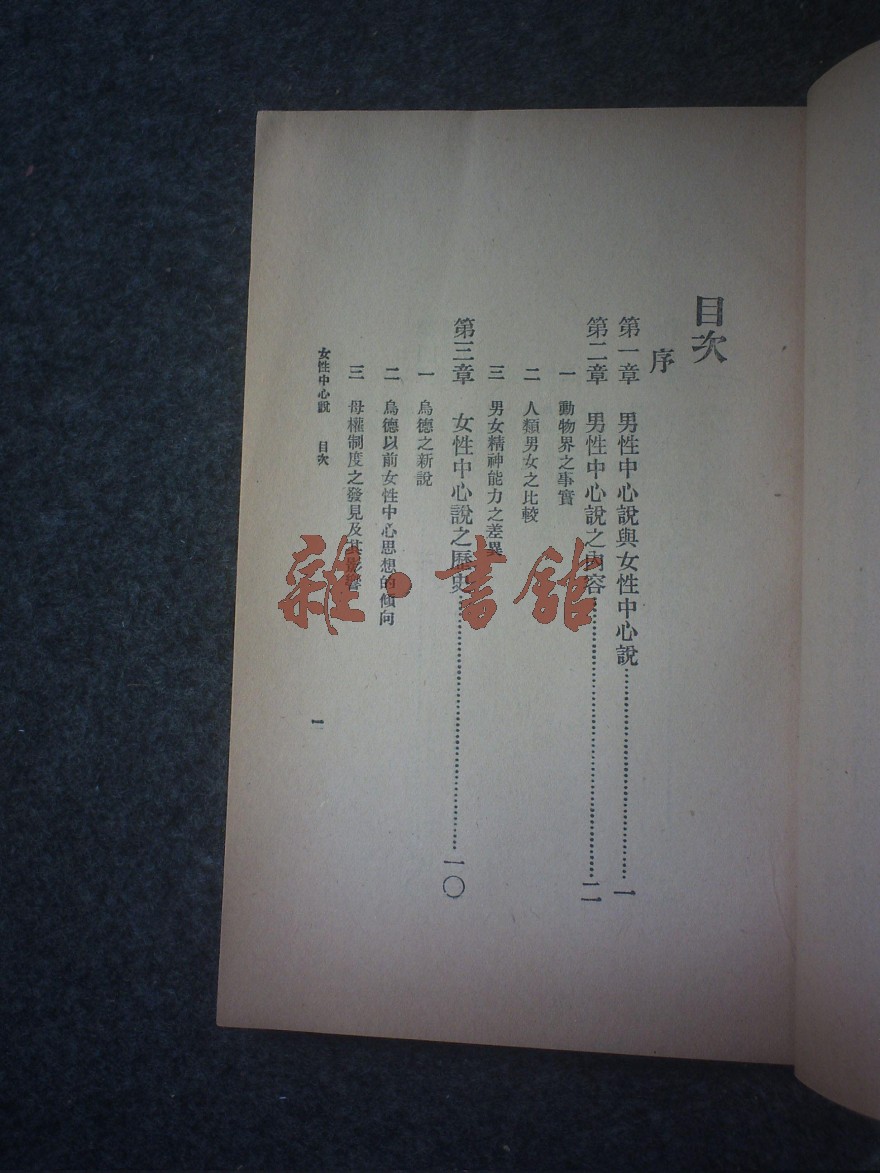 目次
序
第一章 男性中心說與女性中心說…………一
第二章 男性中心說之內容…………二
一 動物界之事實
二 人類男女之比較
三 男女精神能力之差異
第三章 女性中心說之歷史…………一〇
一 烏德之新說
二 烏德以前女性中心思想的傾向
三 母權制度之發見及其影響
女性中心說 目次
一
雜·書館